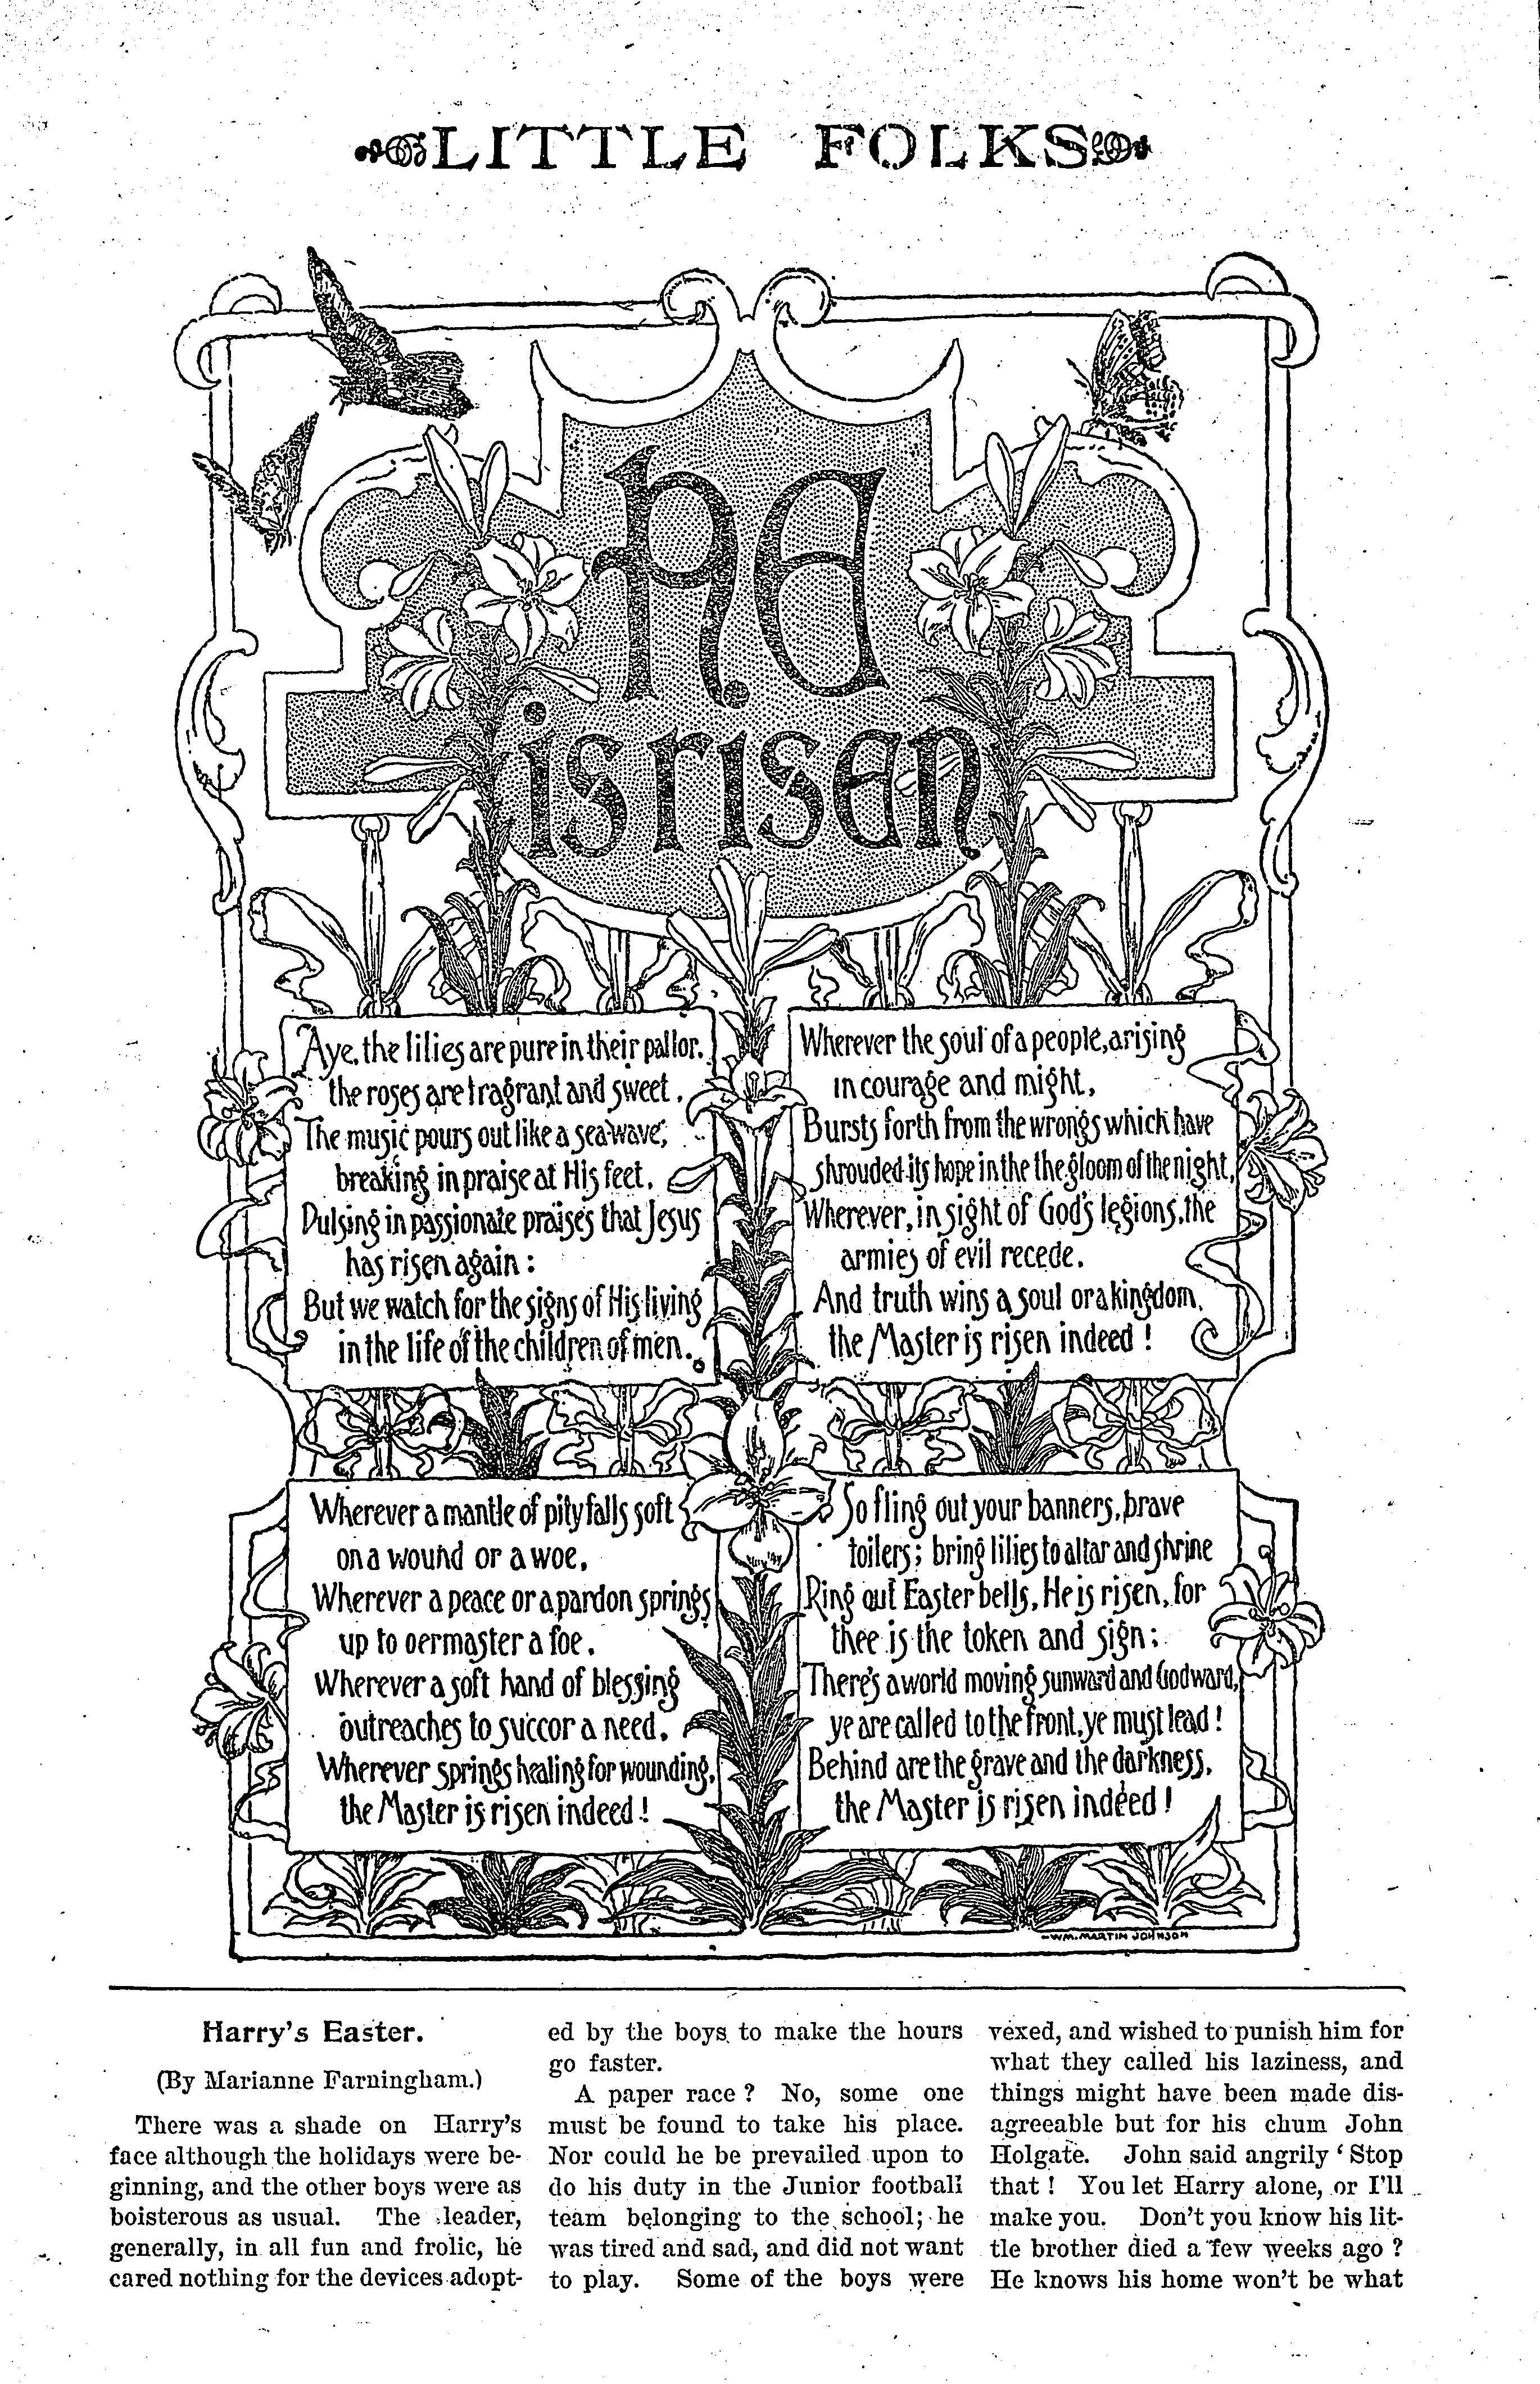 LITTLE FOLKS
He
is risen
Aye, the lilies are pure in their pallor,
the roses are fragrant and sweet,
The music pours out like a sea wave,
breaking in praise at His feet,
Pulsing in passionate praises that Jesus
has risen again:
But we watch for the signs of His living
in the life of the children of men.
Wherever the soul of a people, arising
in courage and might,
Bursts forth from the wrongs which have
shrouded its hope in the the gloom of the night,
Wherever, in sight of God's legions, the
armies of evil recede,
And truth wins a soul or a kingdom,
the Master is risen indeed!
Wherever a mantle of pity falls soft
on a wound or a woe,
Wherever a peace or a pardon springs
up to oermaster a foe,
Wherever a soft hand of blessing
outreaches to succor a need,
Wherever springs healing for wounding,
the Master is risen indeed!
So fling out your banners, brave
toilers; bring lilies to altar and shrine
Ring out Easter bells, He is risen, for
thee is the token and sign;
There's a world moving sunward and Godward,
ye are called to the front, ye must lead!
Behind are the grave and the darkness,
the Master is risen indeed!
-WM. MARTIN JOHNSON
Harry's Easter.
(By Marianne Farningham.)
There was a shade on Harry's
face although the holidays were be-
ginning, and the other boys were as
boisterous as usual. The leader,
generally, in all fun and frolic, he
cared nothing for the devices adopt-
ed by the boys to make the hours
go faster.
A paper race? No, some one
must be found to take his place.
Nor could he be prevailed upon to
do his duty in the Junior football
team belonging to the school; he
was tired and sad, and did not want
to play. Some of the boys were
vexed, and wished to punish him for
what they called his laziness, and
things might have been made dis-
agreeable but for his chum John
Holgate. John said angrily 'Stop
that! You let Harry alone, or I'll
make you. Don't you know his lit-
tle brother died a few weeks ago?
He knows his home won't be what